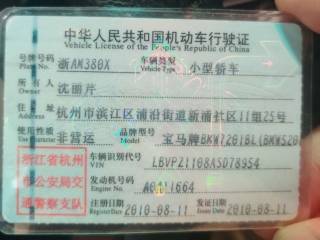 中华人民共和国机动车行驶证
Vehicle License of the People's Republic of China
号牌号码 浙AM380X 车辆类型 小型轿车
Plate No. Vehicle Type
所有人 沈丽芹
Owner
住址 杭州市滨江区浦沿街道新浦社区11组25号
Address
使用性质 非营运 品牌型号 宝马牌BMW7201BL(BMW520
浙江省杭州 车辆识别代号 LBVP21108ASD78954
VIN
市公安局交 发动机号码
Engine No.
通警察支队 注册日期 2010-08-11 发证日期 2010-08-11
Register Date Issue Date